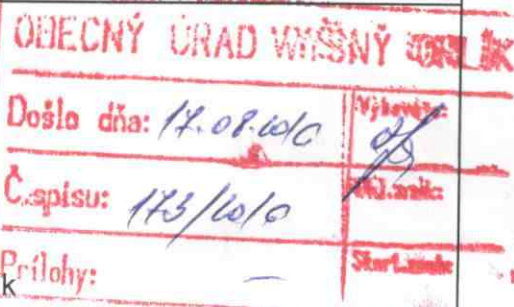 OBECNÝ ÚRAD VYŠNÝ ORLÍK
Došlo dňa: 17.08.2010
Vybavuje:
Č.spisu: 173/2010
Prílohy: —
k